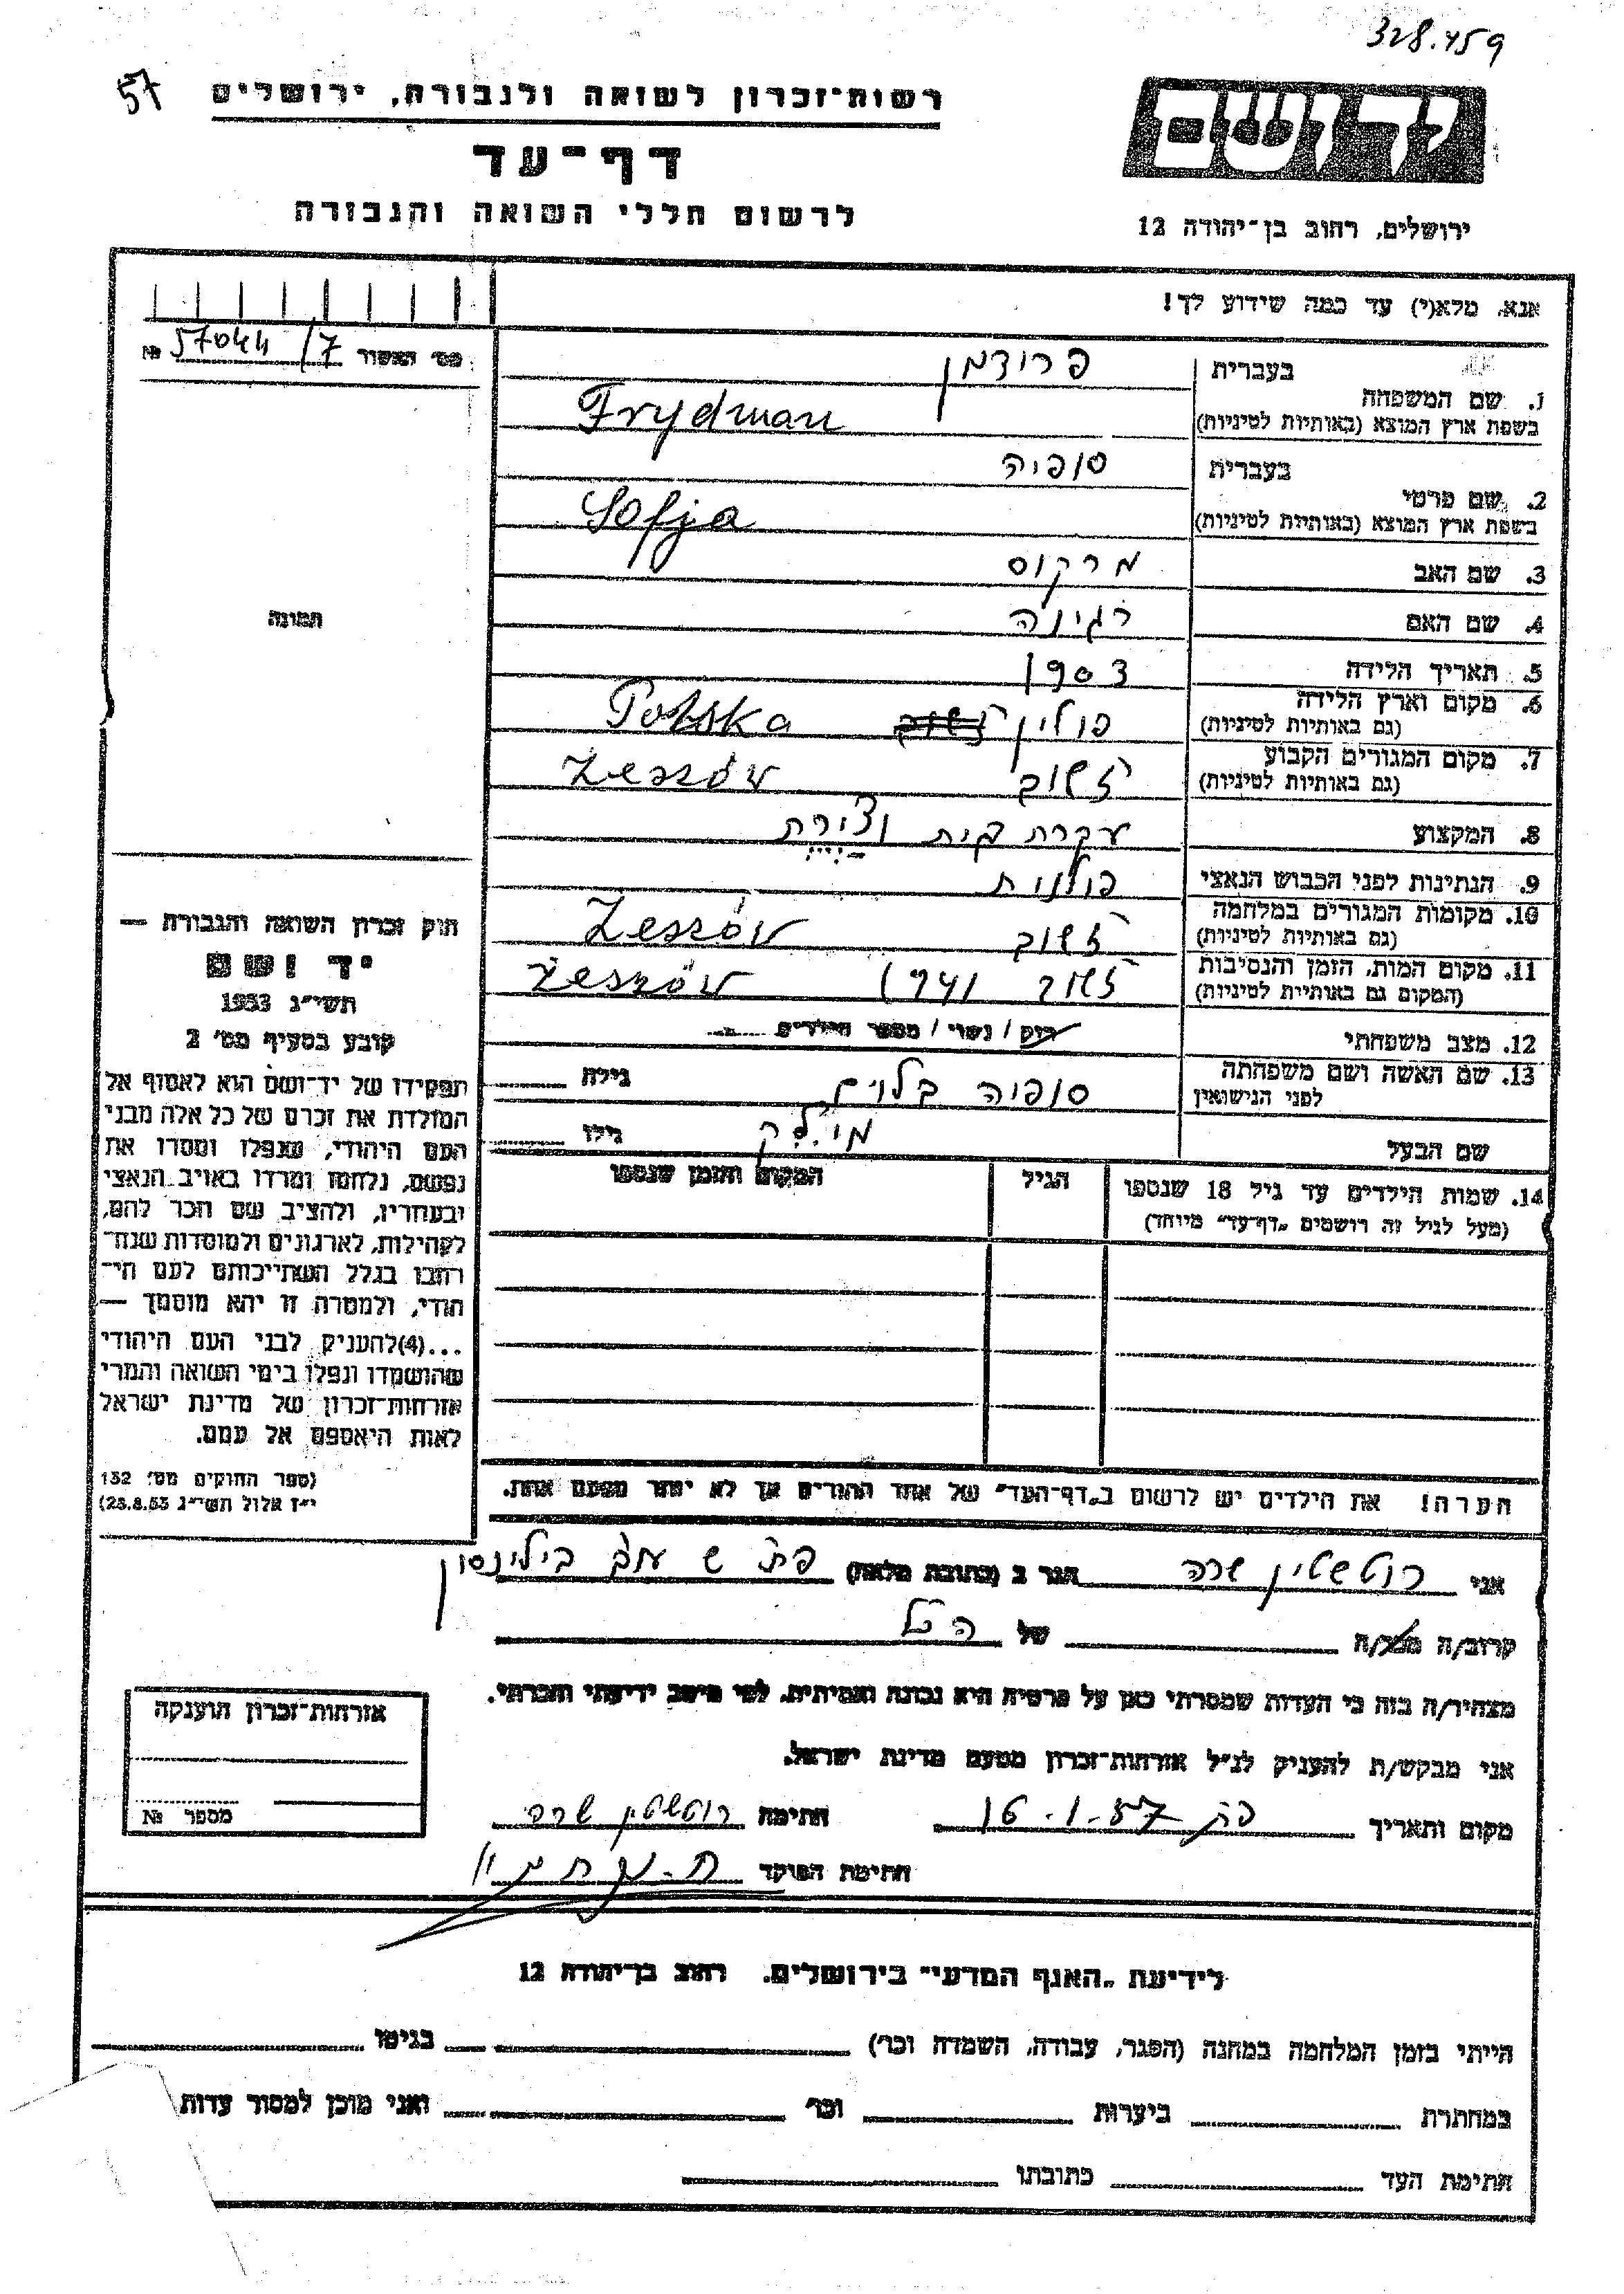 328.459
57
רשות־זכרון לשואה ולגבורה, ירושלים
דף־עד
לרשום חללי השואה והגבורה
ירושלים, רחוב בן־יהודה 12
אנא, מלא(י) עד כמה שידוע לך!
מס׳ האשור 57044/7 №
בעברית פרידמן
1. שם המשפחה
בשפת ארץ המוצא (באותיות לטיניות) Frydman
בעברית סופיה
2. שם פרטי
בשפת ארץ המוצא (באותיות לטיניות) Sofja
3. שם האב מרקוס
4. שם האם רגינה
5. תאריך הלידה 1903
6. מקום וארץ הלידה
(גם באותיות לטיניות) פולין Polska
7. מקום המגורים הקבוע
(גם באותיות לטיניות) ז׳שוב Żeszów
8. המקצוע עקרת בית
9. הנתינות לפני הכבוש הנאצי פולנית
10. מקומות המגורים במלחמה
(גם באותיות לטיניות) ז׳שוב Żeszów
11. מקום המות, הזמן והנסיבות
(המקום גם באותיות לטיניות) ז׳שוב Żeszów
12. מצב משפחתי רווק / נשוי / מספר הילדים
13. שם האשה ושם משפחתה
לפני הנישואין סופיה גילה
שם הבעל גילו
14. שמות הילדים עד גיל 18 שנספו
(מעל לגיל זה רושמים „דף־עד״ מיוחד)
הגיל
המקום והזמן שנספו
הערה! את הילדים יש לרשום ב„דף־העד״ של אחד ההורים אך לא יותר מפעם אחת.
תמונה
חוק זכרון השואה והגבורה —
יד ושם
תשי״ג 1953
קובע בסעיף מס׳ 2
תפקידו של יד־ושם הוא לאסוף אל
המולדת את זכרם של כל אלה מבני
העם היהודי, שנפלו ומסרו את
נפשם, נלחמו ומרדו באויב הנאצי
ובעוזריו, ולהציב שם וזכר להם,
לקהילות, לארגונים ולמוסדות שנח־
רבו בגלל השתייכותם לעם הי־
הודי, ולמטרה זו יהא מוסמך —
...(4)להעניק לבני העם היהודי
שהושמדו ונפלו בימי השואה והמרי
אזרחות־זכרון של מדינת ישראל
לאות היאספם אל עמם.
(ספר החוקים מס׳ 132
י״ז אלול תשי״ג 28.8.53)
אני רוטשטין שרה הגר ב (כתובת מלאה) פת בילינסון
קרוב/ה מכר/ה של הנ״ל
מצהיר/ה בזה כי העדות שמסרתי כאן על פרטיה היא נכונה ואמיתית, לפי מיטב ידיעתי והכרתי.
אני מבקש/ת להעניק לנ״ל אזרחות־זכרון מטעם מדינת ישראל.
מקום ותאריך פת 16.1.57 חתימה רוטשטין שרה
חתימת הפוקד
אזרחות־זכרון הוענקה
מספר №
לידיעת „האגף המדעי״ בירושלים, רחוב בן־יהודה 12
הייתי בזמן המלחמה במחנה (הסגר, עבודה, השמדה וכו׳) בגיטו
במחתרת ביערות וכו׳ ואני מוכן למסור עדות
חתימת העד כתובתו